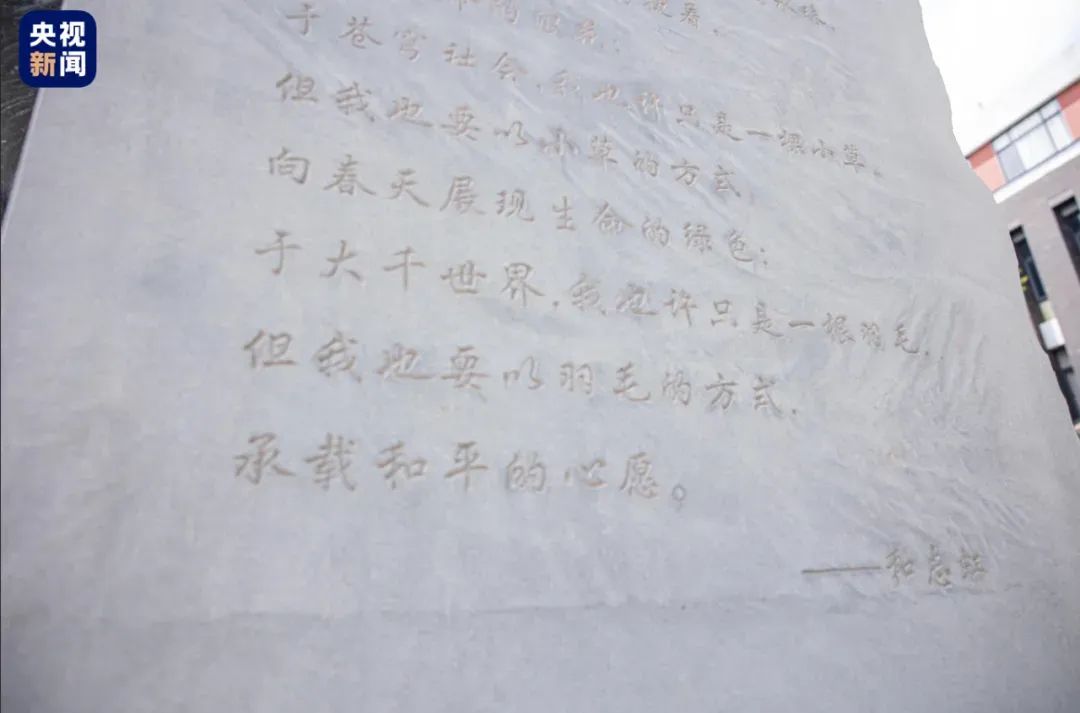 央视
新闻
于苍穹社会,我也许只是一棵小草。
但我也要以小草的方式,
向春天展现生命的绿色;
于大千世界,我也许只是一根羽毛,
但我也要以羽毛的方式,
承载和平的心愿。
——和志虹